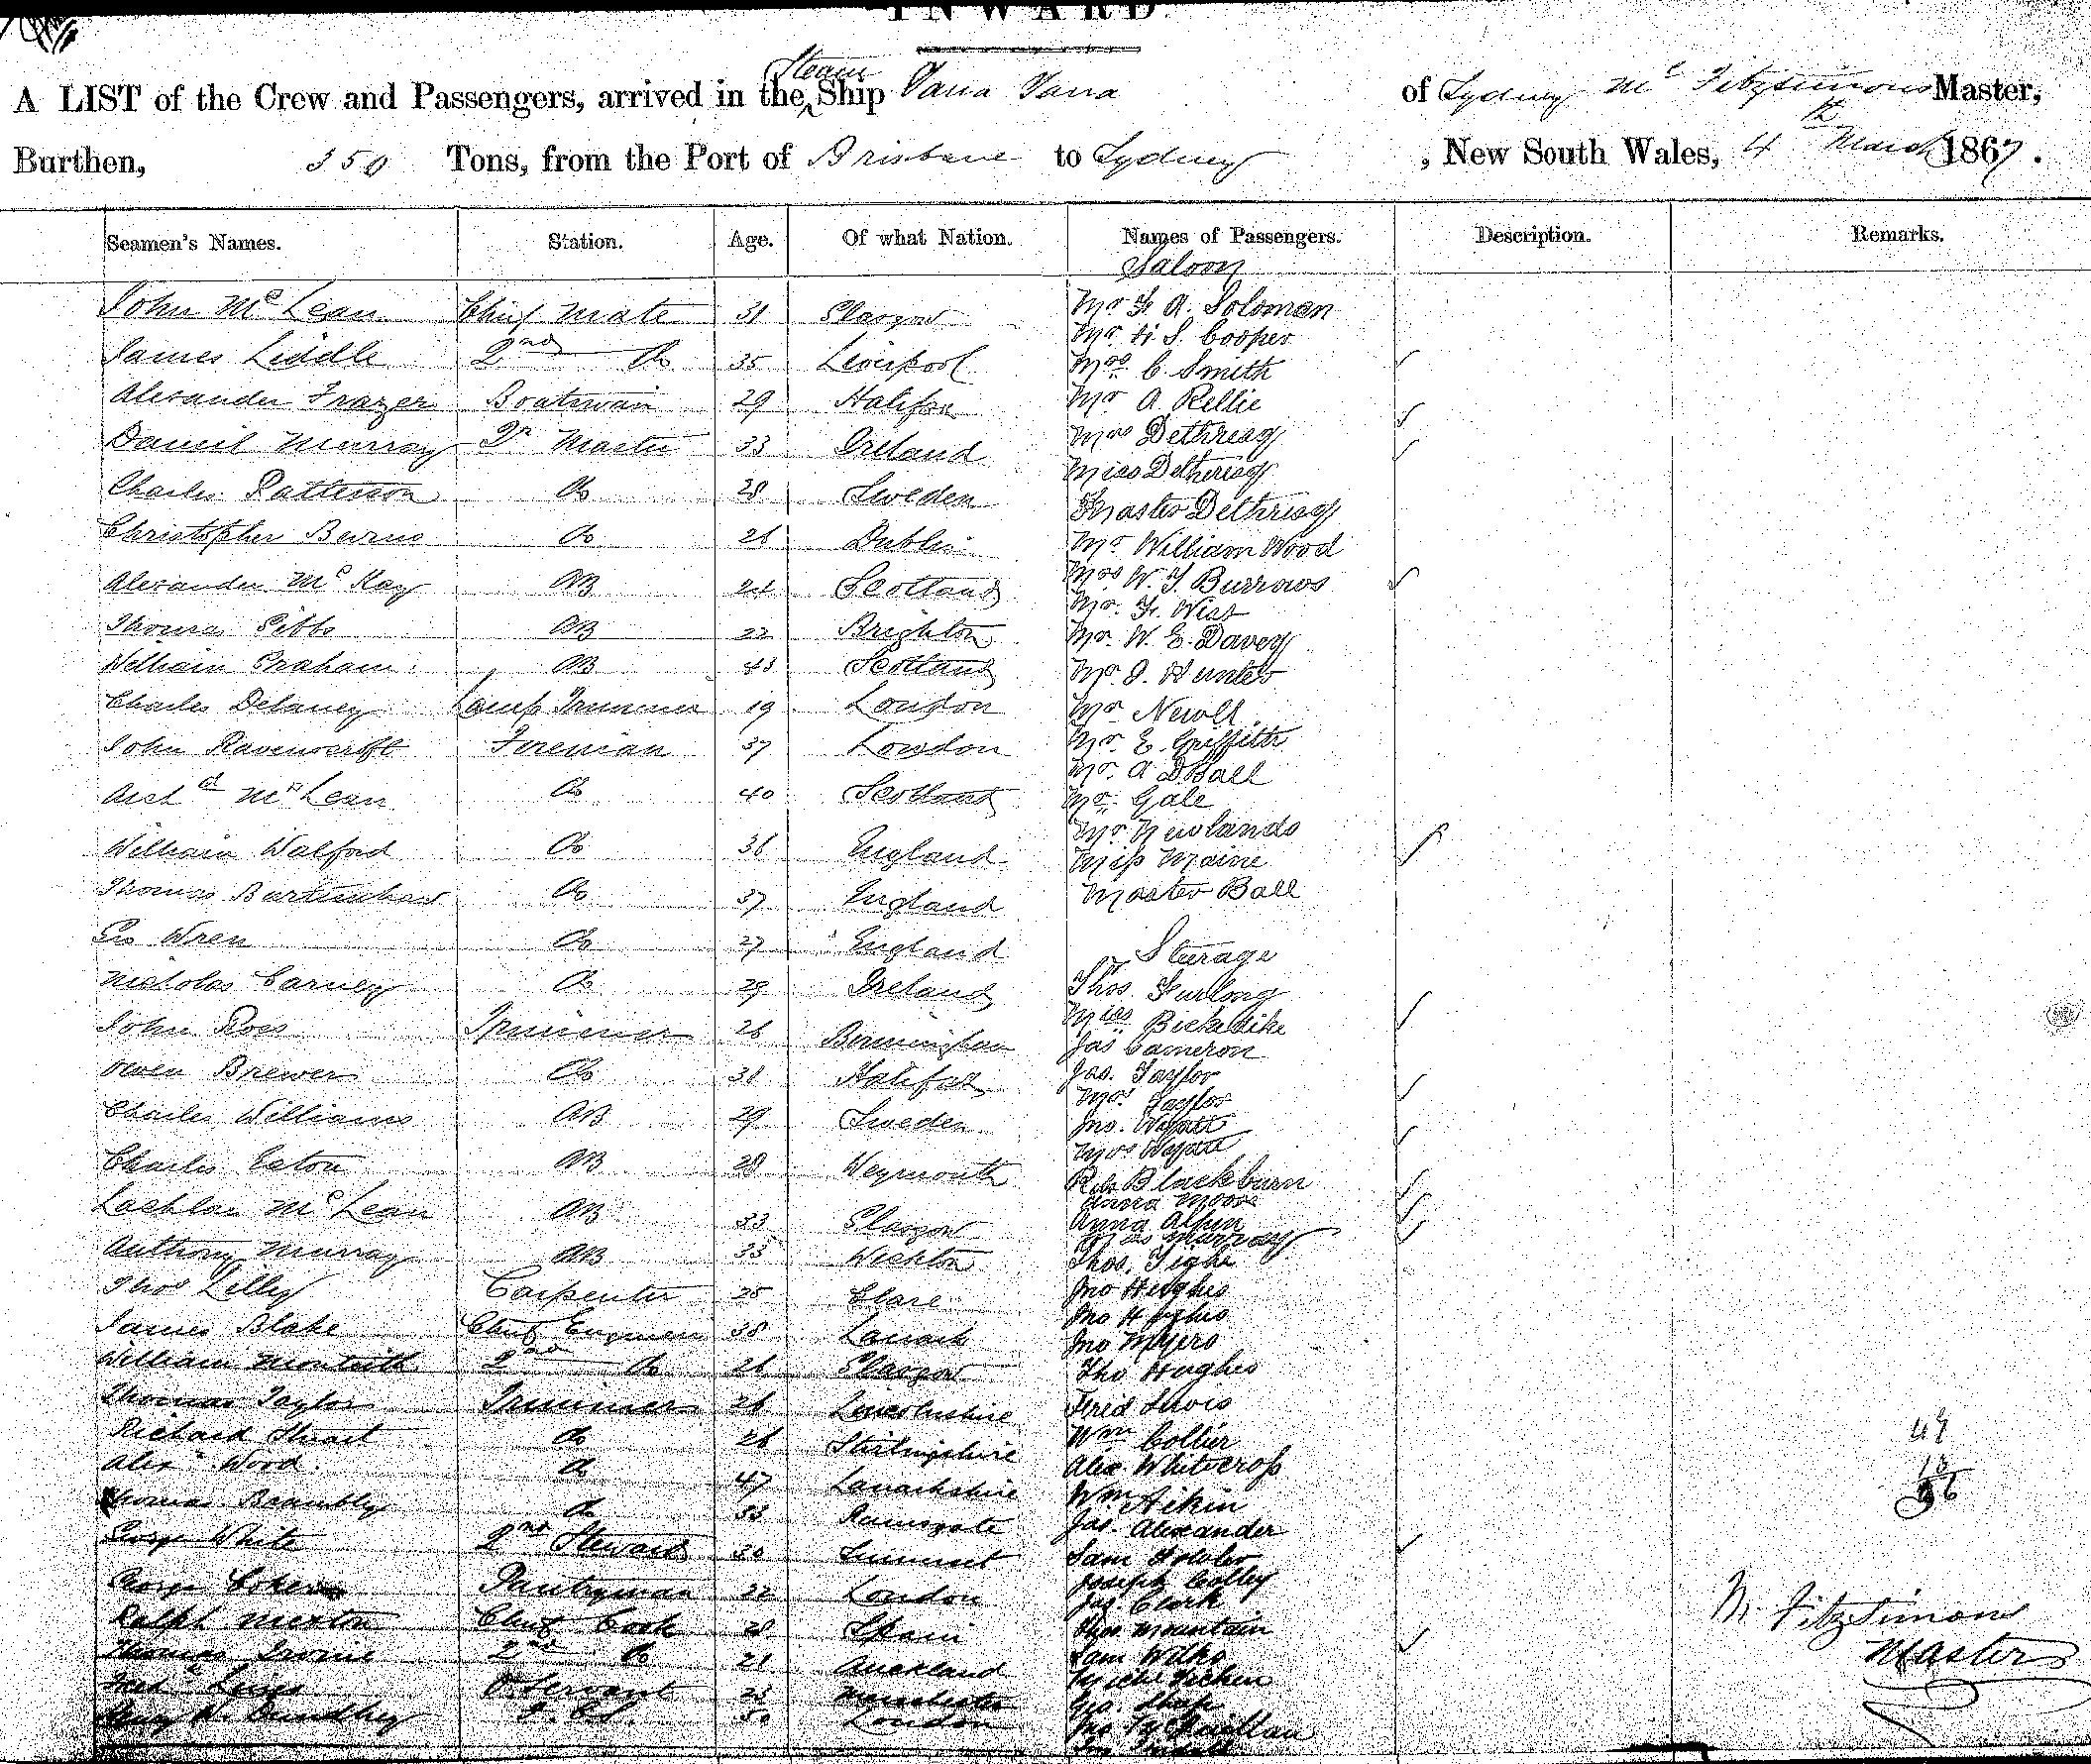 INWARD
A LIST of the Crew and Passengers, arrived in the Steam Ship Yarra Yarra of Sydney Mc Fitzsimons Master,
Burthen, 350 Tons, from the Port of Brisbane to Sydney , New South Wales, 4th March 1867.
Seamen's Names. Station. Age. Of what Nation. Names of Passengers. Description. Remarks.
Saloon
John McLean Chief Mate 31 Glasgow Mr F. A. Soloman
Mr H. S. Cooper
James Liddle 2nd Do 35 Liverpool Mrs C. Smith
Alexander Frazer Boatswain 29 Halifax Mr A Rellie
Daniel Murray Qr Master 33 Ireland Mrs Dethridg
Miss Detheridg
Charles Patterson Do 28 Sweden Master Dethridg
Christopher Do 26 Dublin Mr William Wood
Alexander McKay AB 24 Scotland Mrs W. Y. Burrows
Mr. F. West
Thomas Gibbs AB 22 Brighton Mr. W. E. Davey
William Graham AB 43 Scotland Mr. J. Hunter
Charles Delaney Lamp Trimmer 19 London Mr Newell
John Ravenscroft Fireman 37 London Mr. E. Griffith
Mr. A D Ball
Archd McLean Do 40 Scotland Mr. Gale
Mr. Newlands
William Walford Do 36 England Miss Maine
Thomas Do 37 England Master Ball
Geo Wren Do 27 England Sturage
Nicholas Carney Do 29 Ireland Thos. Furlong
John Ross Trimmer 26 Birmingham Miss Bickadike
Jas Cameron
Owen Brewer Do 38 Halifax Jas. Taylor
Mrs Taylor
Charles Williams AB 29 Sweden Jno. Wyatt
Mrs Wyatt
Charles Eaton AB 28 Weymouth Blackburn
Anna Moore
Lachlan McLean AB 33 Glasgow Anna
Murray
Anthony Murray AB 33 Thos. Tighe
Thos Lilley Carpenter 25 Clare Jno Hughes
Jno Hughes
James Blake Chief Engineer 38 Lanark Jno Myers
William Monteith 2nd Do 26 Glasgow Tho Hughes
Thomas Taylor Trimmer 26 Lincolnshire Fred Lewis
Richard Stuart Do 26 Stirlingshire Wm Collier
Alexr Wood Do 47 Lanarkshire Alex. Whitecross
Wm Aikin
Thomas Brambly Do 33 Ramsgate Jas. Alexander
George White 2nd Steward 30 Sumerset Sam
Joseph Colley
George Pantryman 22 London Jas Clark
Ralph Chief Cook 28 Spain Thos Mountain
Thomas Irvine 2nd Do 21 Auckland Sam Wilks
Fred Servant 23 Manchester Geo. Sharp
London
49
M. Fitzsimons
Master